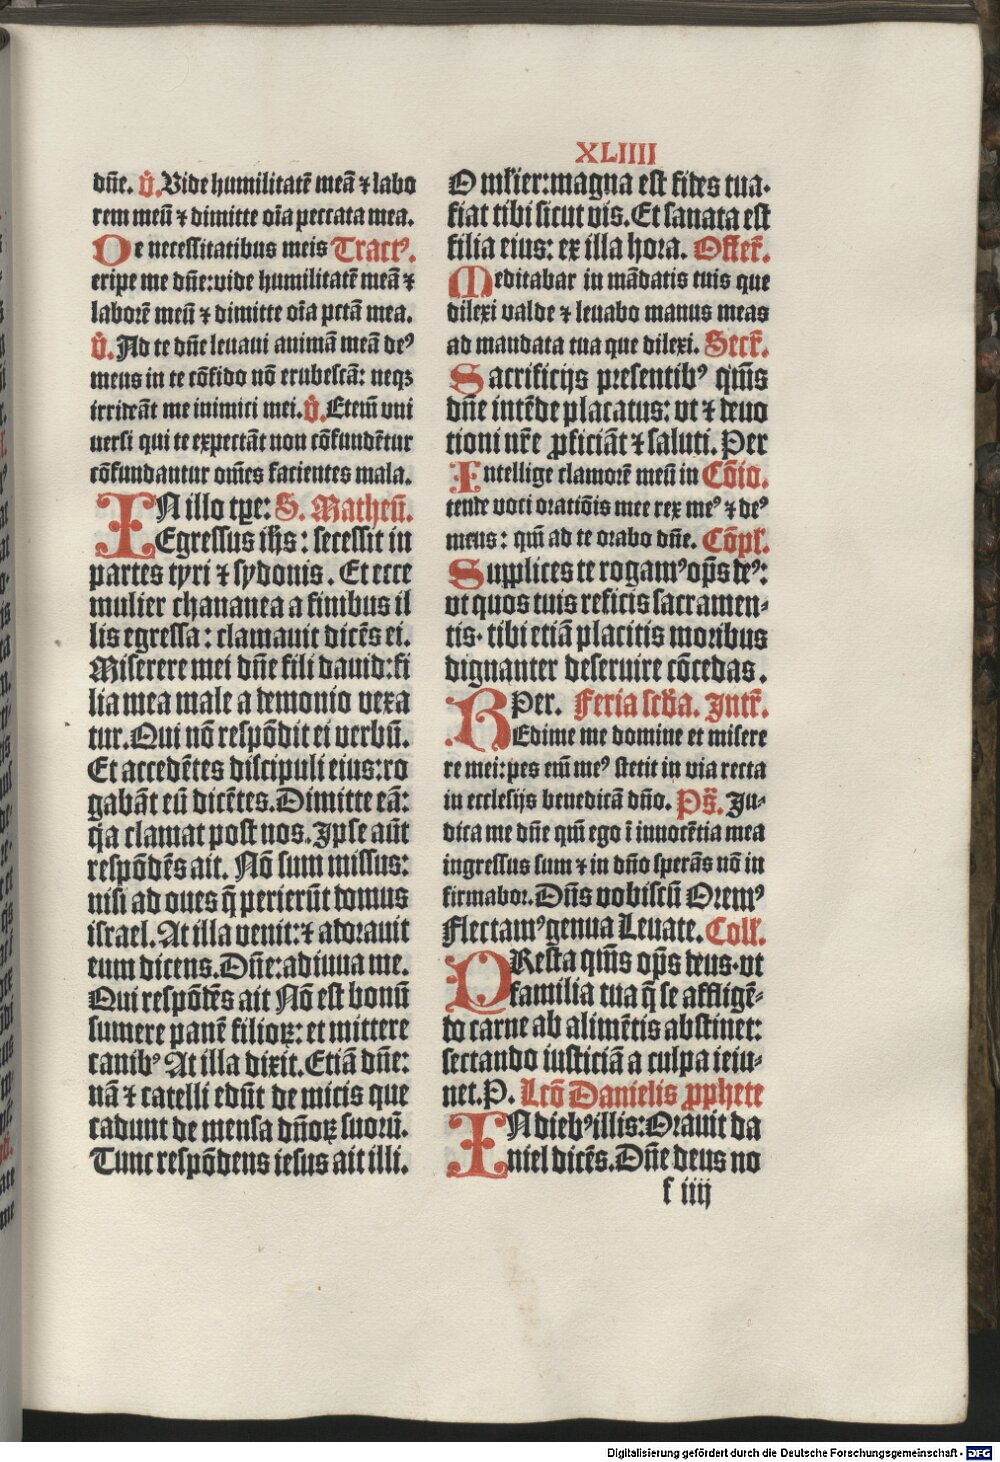 XLIIII
dñe. v̊. Vide humilitatē meā ⁊ labo
rem meū ⁊ dimitte oīa peccata mea.
De necessitatibus meis Tractꝰ.
eripe me dñe: vide humilitatē meā ⁊
laborē meū ⁊ dimitte oīa pctā mea.
v̊. Ad te dñe levavi animā meā deꝰ
meus in te cōfido nō erubescā: neqꝫ
irrideāt me inimici mei. v̊. Eteni᷒ uni
versi qui te expectāt non cōfundētur
cōfundantur om̄es facientes mala.
IN illo tꝑe: S. Matheū.
Egressus ih̄s: secessit in
partes tyri ⁊ sydonis. Et ecce
mulier chananea a finibus il
lis egressa: clamavit dicēs ei.
Miserere mei dñe fili david: fi
lia mea male a demonio vexa
tur. Qui nō respōdit ei verbū.
Et accedētes discipuli eius: ro
gabāt eū dicētes. Dimitte eā:
q̇a clamat post nos. Ipse aūt
respōdēs ait. Nō sum missus:
nisi ad oves q̄ perierūt domus
israel. At illa venit: ⁊ adoravit
eum dicens. Dñe: adiuva me.
Qui respōdēs ait Nō est bonū
sumere panē filioꝝ: et mittere
canibꝰ At illa dixit. Etiā dñe:
nā ⁊ catelli edūt de micis que
cadunt de mensa dñoꝝ suorū.
Tunc respōdens iesus ait illi.
O ml̄ier: magna est fides tua.
fiat tibi sicut vis. Et sanata est
filia eius: ex illa hora. Offer̄.
Meditabar in mādatis tuis que
dilexi valde ⁊ levabo manus meas
ad mandata tua que dilexi. Secr̄.
Sacrificijs presentibꝰ q̄m̄s
dñe intēde placatus: ut ⁊ devo
tioni nr̄e ꝓficiāt ⁊ saluti. Per
Intellige clamorē meū in Cōio.
tende voci oratiōis mee rex meꝰ ⁊ deꝰ
meus: qm̄ ad te orabo dñe. Cōpl̄.
Supplices te rogamꝰ op̄s deꝰ:
ut quos tuis reficis sacramen-
tis. tibi etiā placitis moribus
dignanter deservire cōcedas.
Per. Feria scd̄a. Intr̄.
REdime me domine et misere
re mei: pes em̄ meꝰ stetit in via recta
in ecclesijs benedicā dño. Ps̄. Ju-
dica me dñe qm̄ ego ī innocētia mea
ingressus sum ⁊ in dño sperās nō in
firmabor. Dñs vobiscū Oremꝰ
Flectamꝰ genua Levate. Coll̄.
PResta q̄m̄s op̄s deus. ut
familia tua q̄ se affligē-
do carne ab alimētis abstinet:
sectando iusticiā a culpa ieiu-
net. P. Lcō Danielis ꝓphete
IN diebꝰ illis: Oravit da
niel dicēs. Dñe deus no
f iiij
Digitalisierung gefördert durch die Deutsche Forschungsgemeinschaft - DFG